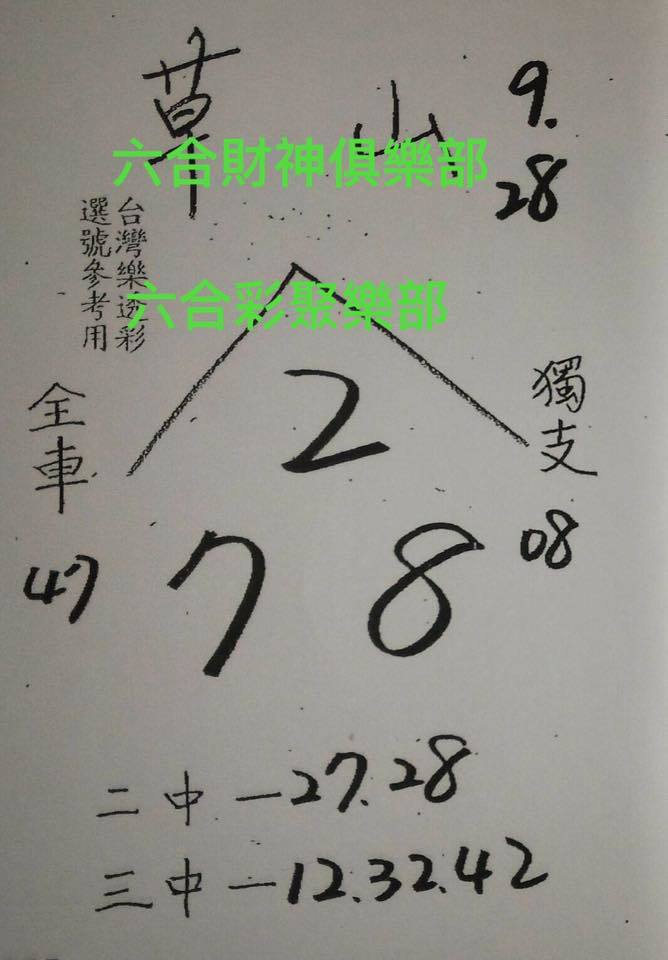 草山
9.
28
六合財神俱樂部
台灣樂透彩
選號參考用
六合彩聚樂部
全車
47
獨支
08
2
7 8
二中一27.28
三中一12.32.42